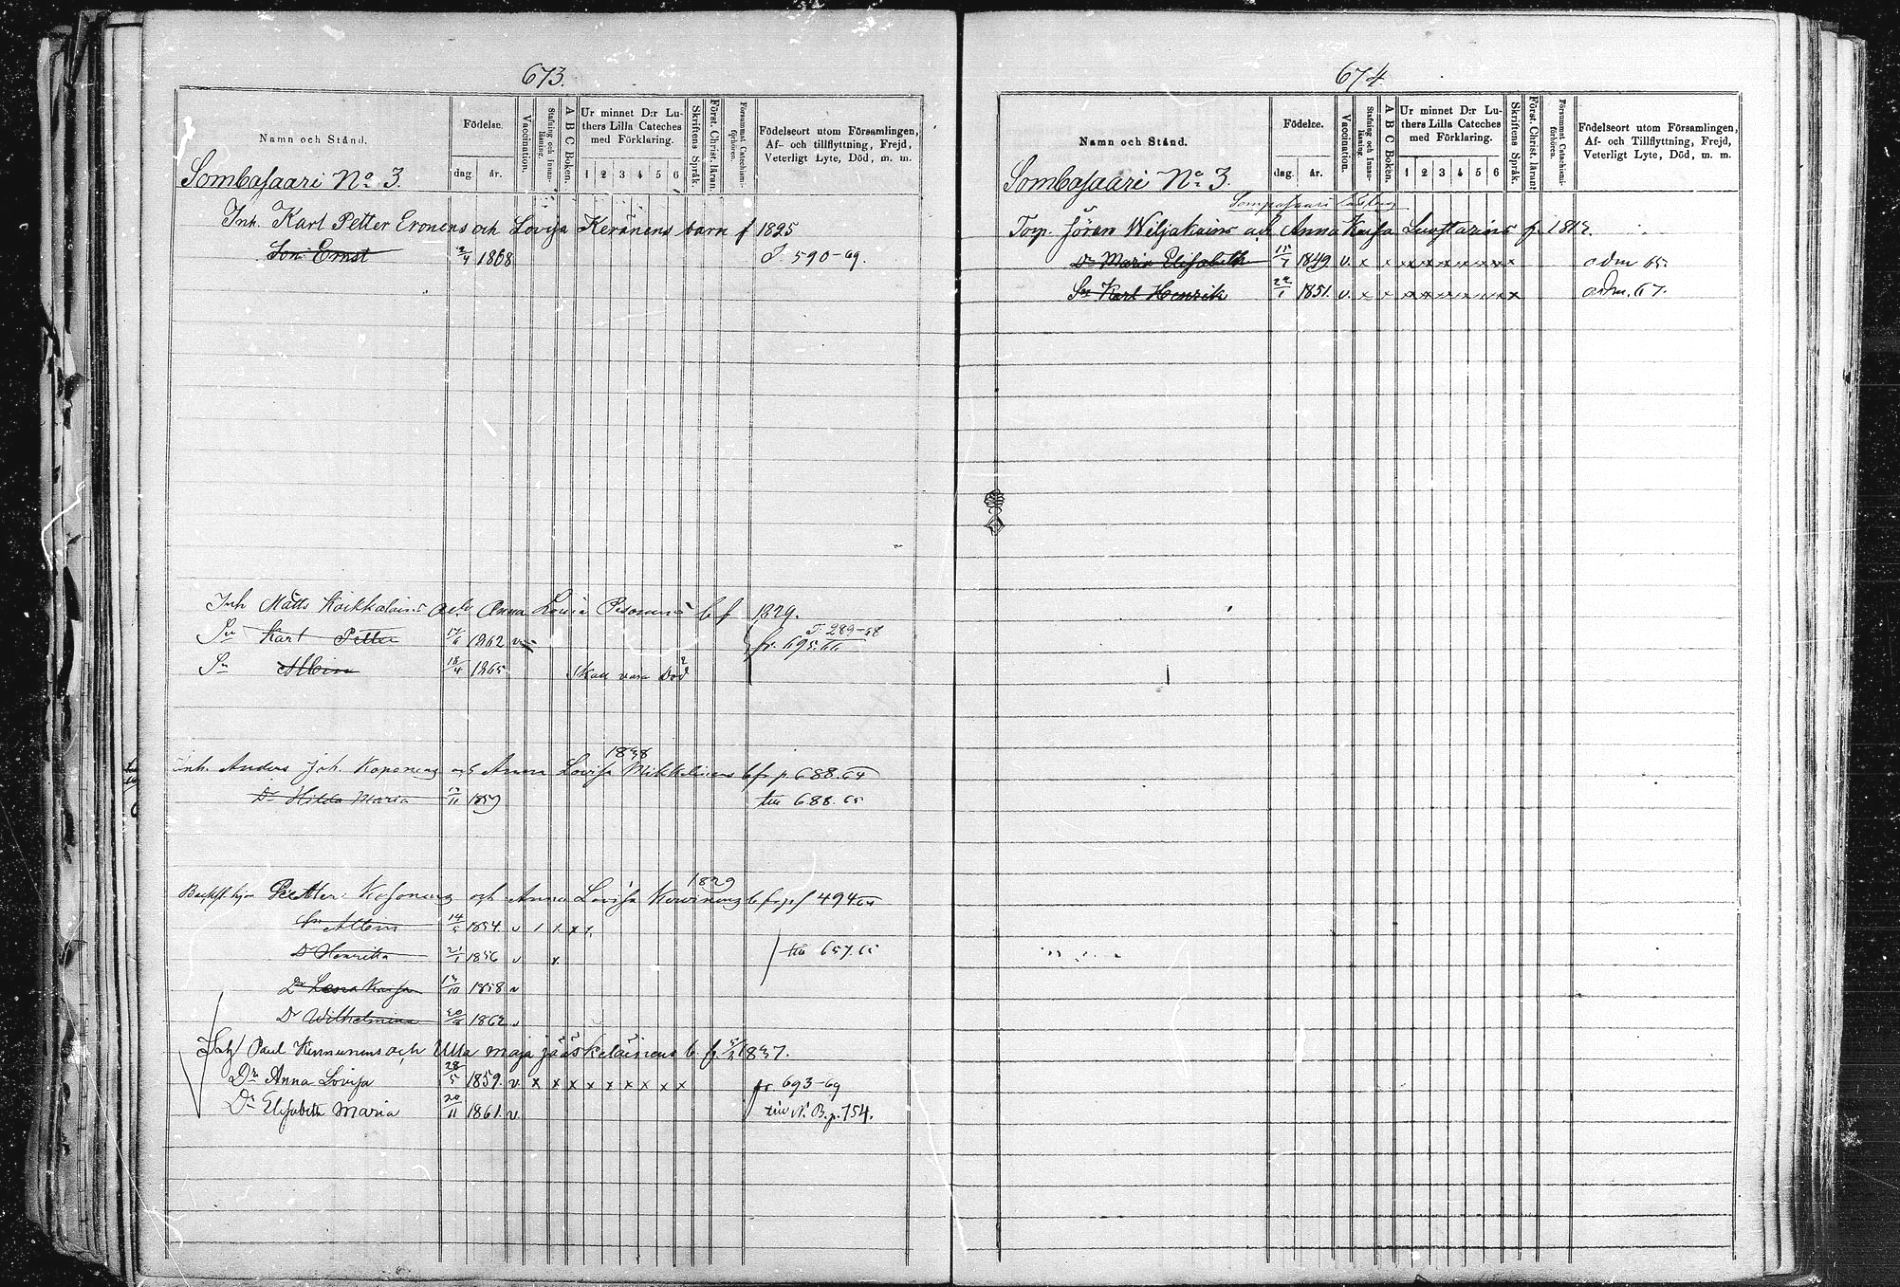 673.
Namn och Stånd.
Födelse.
dag. år.
Vaccination.
Stafning och Innanläsning.
A B C Boken.
Ur minnet D:r Luthers Lilla Cateches med Förklaring.
1 2 3 4 5 6
Skriftens Språk.
Först. Christ. läran.
Försummat Catechismiförhören.
Födelseort utom Församlingen,
Af- och tillflyttning, Frejd,
Veterligt Lyte, Död, m. m.
Sombasaari No 3.
Inh. Karl Petter Eronens och Lovisa Keränens barn f 1825
Son Ernst 2/4 1868 T. 590-69.
Inh Matts Koikkalains och Anna Lovisa b f 1829.
Sn Karl Petter 17/6 1862 v T 289-68
fr. 695.66
Sn Albin 18/4 1865 Skall vara Död
1838
Inh. Anders Joh. Koponens och Anna Lovisa Mikkelinens b fr p 688.64
Dr Hilda Maria 11 1859 till 688.65
1829
Petter Kosonens och Anna Lovisa b f 494.64
Sn Albin 14/5 1854 v x x x
D Henritta 21/1 1856 v x till 657.65
Dr Lena Kaisa 10 1858 v
Dr Wilhelmina 1862 v
Inh Paul Kinnunens och Ulla Maja Jääskeläinens b f 1837.
Dr Anna Lovisa 28/5 1859. v x x x x x x x x x fr. 693-69
Dr Elisabeth Maria 20/11 1861. v till N. B. p. 754.
674.
Namn och Stånd.
Födelse.
dag. år.
Vaccination.
Stafning och Innanläsning.
A B C Boken.
Ur minnet D:r Luthers Lilla Cateches med Förklaring.
1 2 3 4 5 6
Skriftens Språk.
Först. Christ. läran
Försummat Catechismiförhören.
Födelseort utom Församlingen,
Af- och Tillflyttning, Frejd,
Veterligt Lyte, Död, m. m.
Sombasaari No 3.
Torp. Jöran Wiljakains och Anna Kaisa Luostarins f. 1812.
Dr Maria Elisabeth 15/7 1849 v. x x x x x x x x x adm 65.
Sn Karl Henrik 22/1 1851. v. x x x x x x x x x adm. 67.